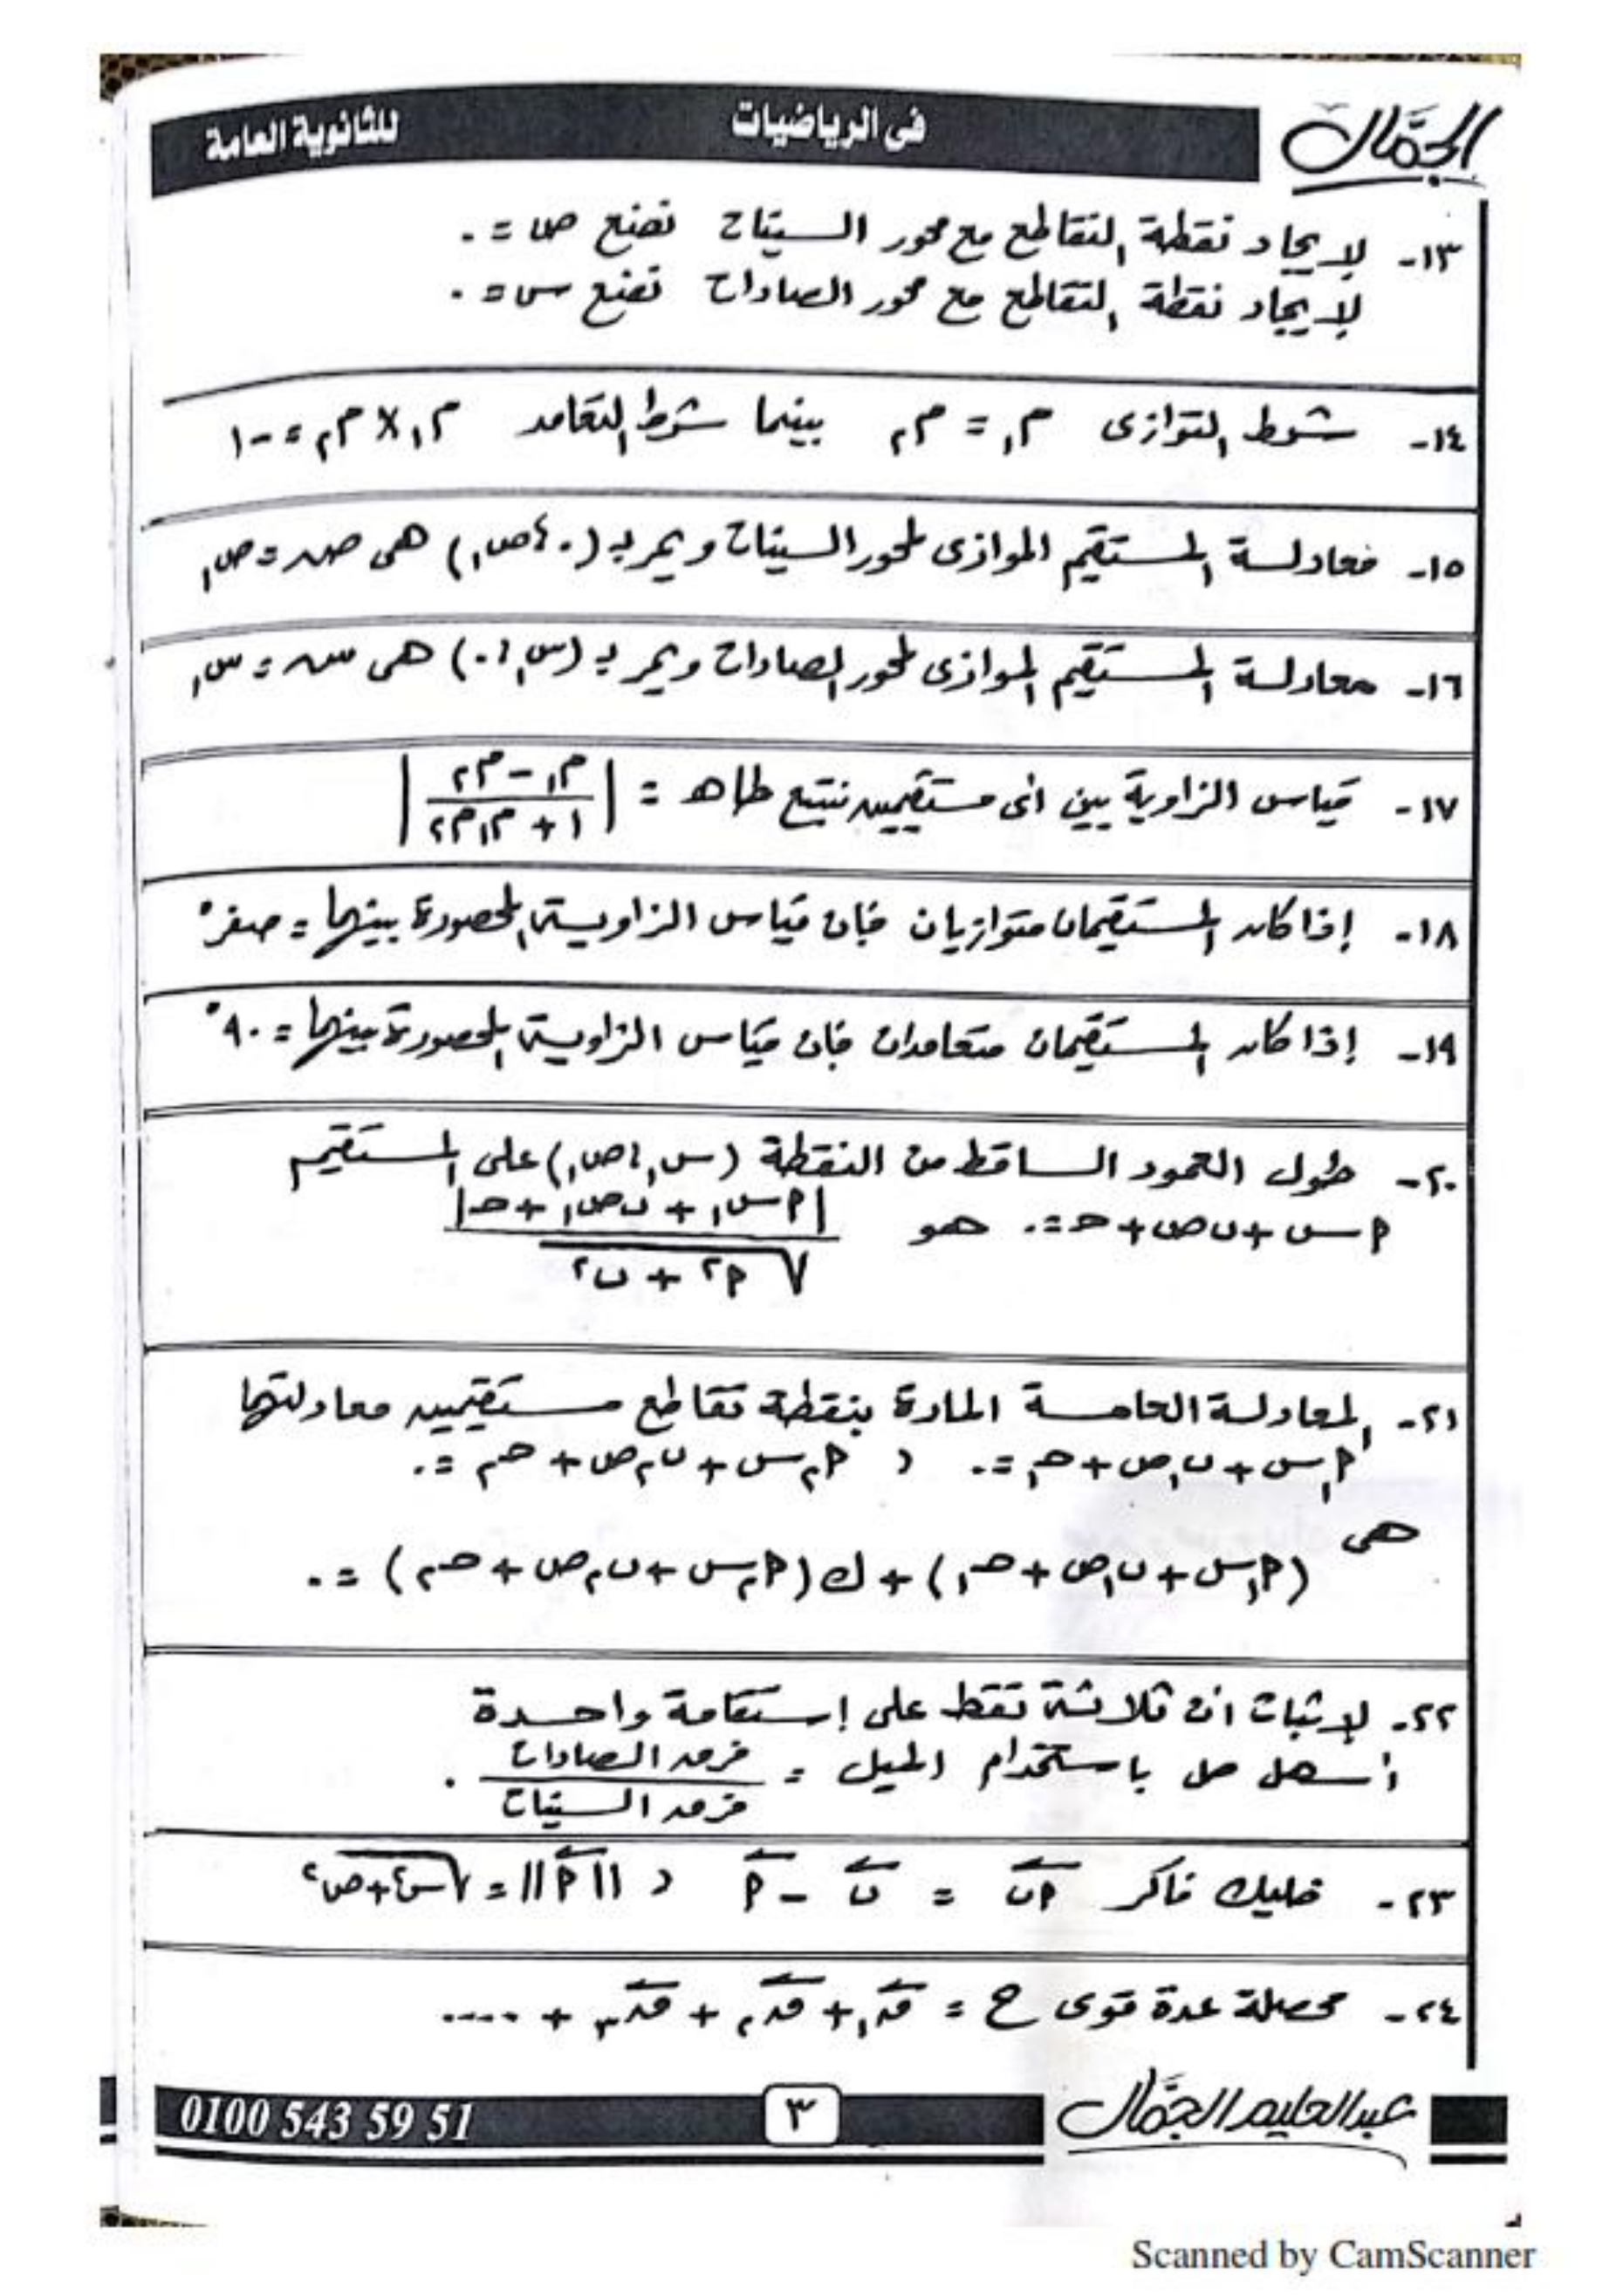 الجمّال
فى الرياضيات
للثانوية العامة
١٣- لإيجاد نقطة التقاطع مع محور السينات نضع ص = ٠
لإيجاد نقطة التقاطع مع محور الصادات نضع س = ٠
١٤- شرط التوازى م١ = م٢ بينما شرط التعامد م١ × م٢ = -١
١٥- معادلة المستقيم الموازى لمحور السينات ويمر بـ (٠ ، ص١) هى ص = ص١
١٦- معادلة المستقيم الموازى لمحور الصادات ويمر بـ (س١ ، ٠) هى س = س١
١٧- قياس الزاوية بين أى مستقيمين نتبع طا هـ = | (م١ - م٢) / (١ + م١ م٢) |
١٨- إذا كان المستقيمان متوازيان فإن قياس الزاوية المحصورة بينهما = صفر°
١٩- إذا كان المستقيمان متعامدان فإن قياس الزاوية المحصورة بينهما = ٩٠°
٢٠- طول العمود الساقط من النقطة (س١ ، ص١) على المستقيم
أ س + ب ص + حـ = ٠ هو |أ س١ + ب ص١ + حـ| / √(أ٢ + ب٢)
٢١- المعادلة العامة المارة بنقطة تقاطع مستقيمين معادلتهما
أ١ س + ب١ ص + حـ١ = ٠ ، أ٢ س + ب٢ ص + حـ٢ = ٠
هى
(أ١ س + ب١ ص + حـ١) + ك (أ٢ س + ب٢ ص + حـ٢) = ٠
٢٢- لإثبات أن ثلاثة نقط على إستقامة واحدة
أسهل حل باستخدام الميل = فرق الصادات / فرق السينات .
٢٣- خليك فاكر أب = ب - أ ، ||أ|| = √(س٢ + ص٢)
٢٤- محصلة عدة قوى ح = ق١ + ق٢ + ق٣ + ....
عبدالحليم الجمّال
٣
0100 543 59 51
Scanned by CamScanner